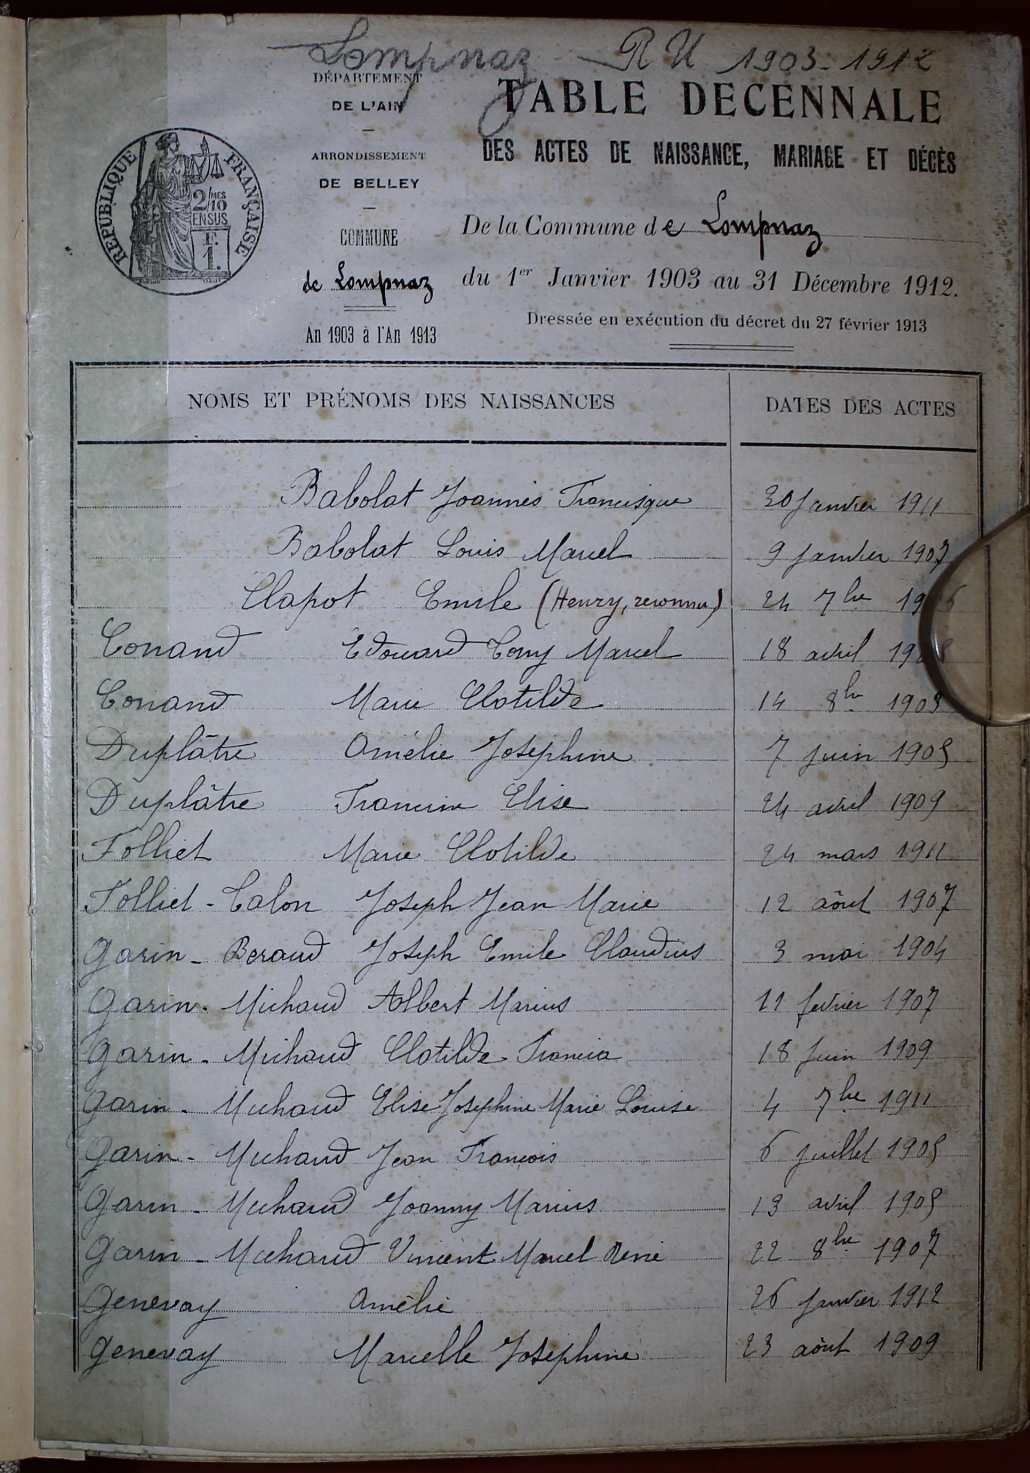 Lompnaz - RU 1903-1912
DÉPARTEMENT
DE L'AIN
TABLE DÉCENNALE
DES ACTES DE NAISSANCE, MARIAGE ET DÉCÈS
ARRONDISSEMENT
DE BELLEY
RÉPUBLIQUE FRANÇAISE
2/10 EN SUS
F. 1.
COMMUNE
de Lompnaz
De la Commune de Lompnaz
du 1er Janvier 1903 au 31 Décembre 1912.
An 1903 à l'An 1913
Dressée en exécution du décret du 27 février 1913
NOMS ET PRÉNOMS DES NAISSANCES DATES DES ACTES
Babolat Joannès Francisque 30 Janvier 1911
Babolat Louis Marcel 9 Janvier 1907
Clapot Emile (Henry, reconnu) 24 7bre 19
Conand Edouard Tony Marcel 18 avril 190
Conand Marie Clotilde 14 8bre 1905
Duplâtre Amélie Joséphine 7 juin 1905
Duplâtre Francine Elise 24 avril 1909
Folliet Marie Clotilde 24 mars 1911
Folliet - Talon Joseph Jean Marie 12 aôut 1907
Garin - Beraud Joseph Emile Claudius 3 mai 1904
Garin - Michaud Albert Marius 11 fevrier 1907
Garin - Michaud Clotilde Francia 18 Juin 1909
Garin - Michaud Elise Joséphine Marie Louise 4 7bre 1911
Garin - Michaud Jean François 6 juillet 1905
Garin - Michaud Joanny Marius 13 avril 1905
Garin - Michaud Vincent Marcel René 22 8bre 1907
Genevay Amélie 26 Janvier 1912
Genevay Marcelle Joséphine 23 aôut 1909